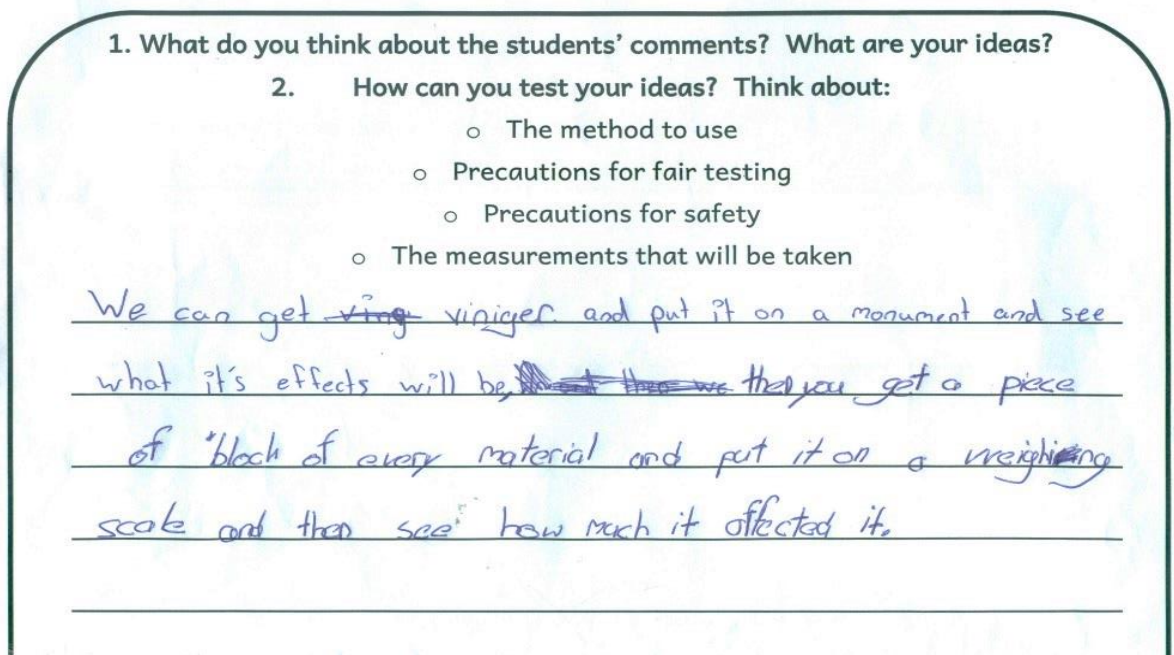 1. What do you think about the students’ comments? What are your ideas?
2. How can you test your ideas? Think about:
o The method to use
o Precautions for fair testing
o Precautions for safety
o The measurements that will be taken
We can get ving viniger and put it on a monument and see
what it's effects will be, then you get a piece
of block of every material and put it on a weighing
scale and then see how much it affected it.